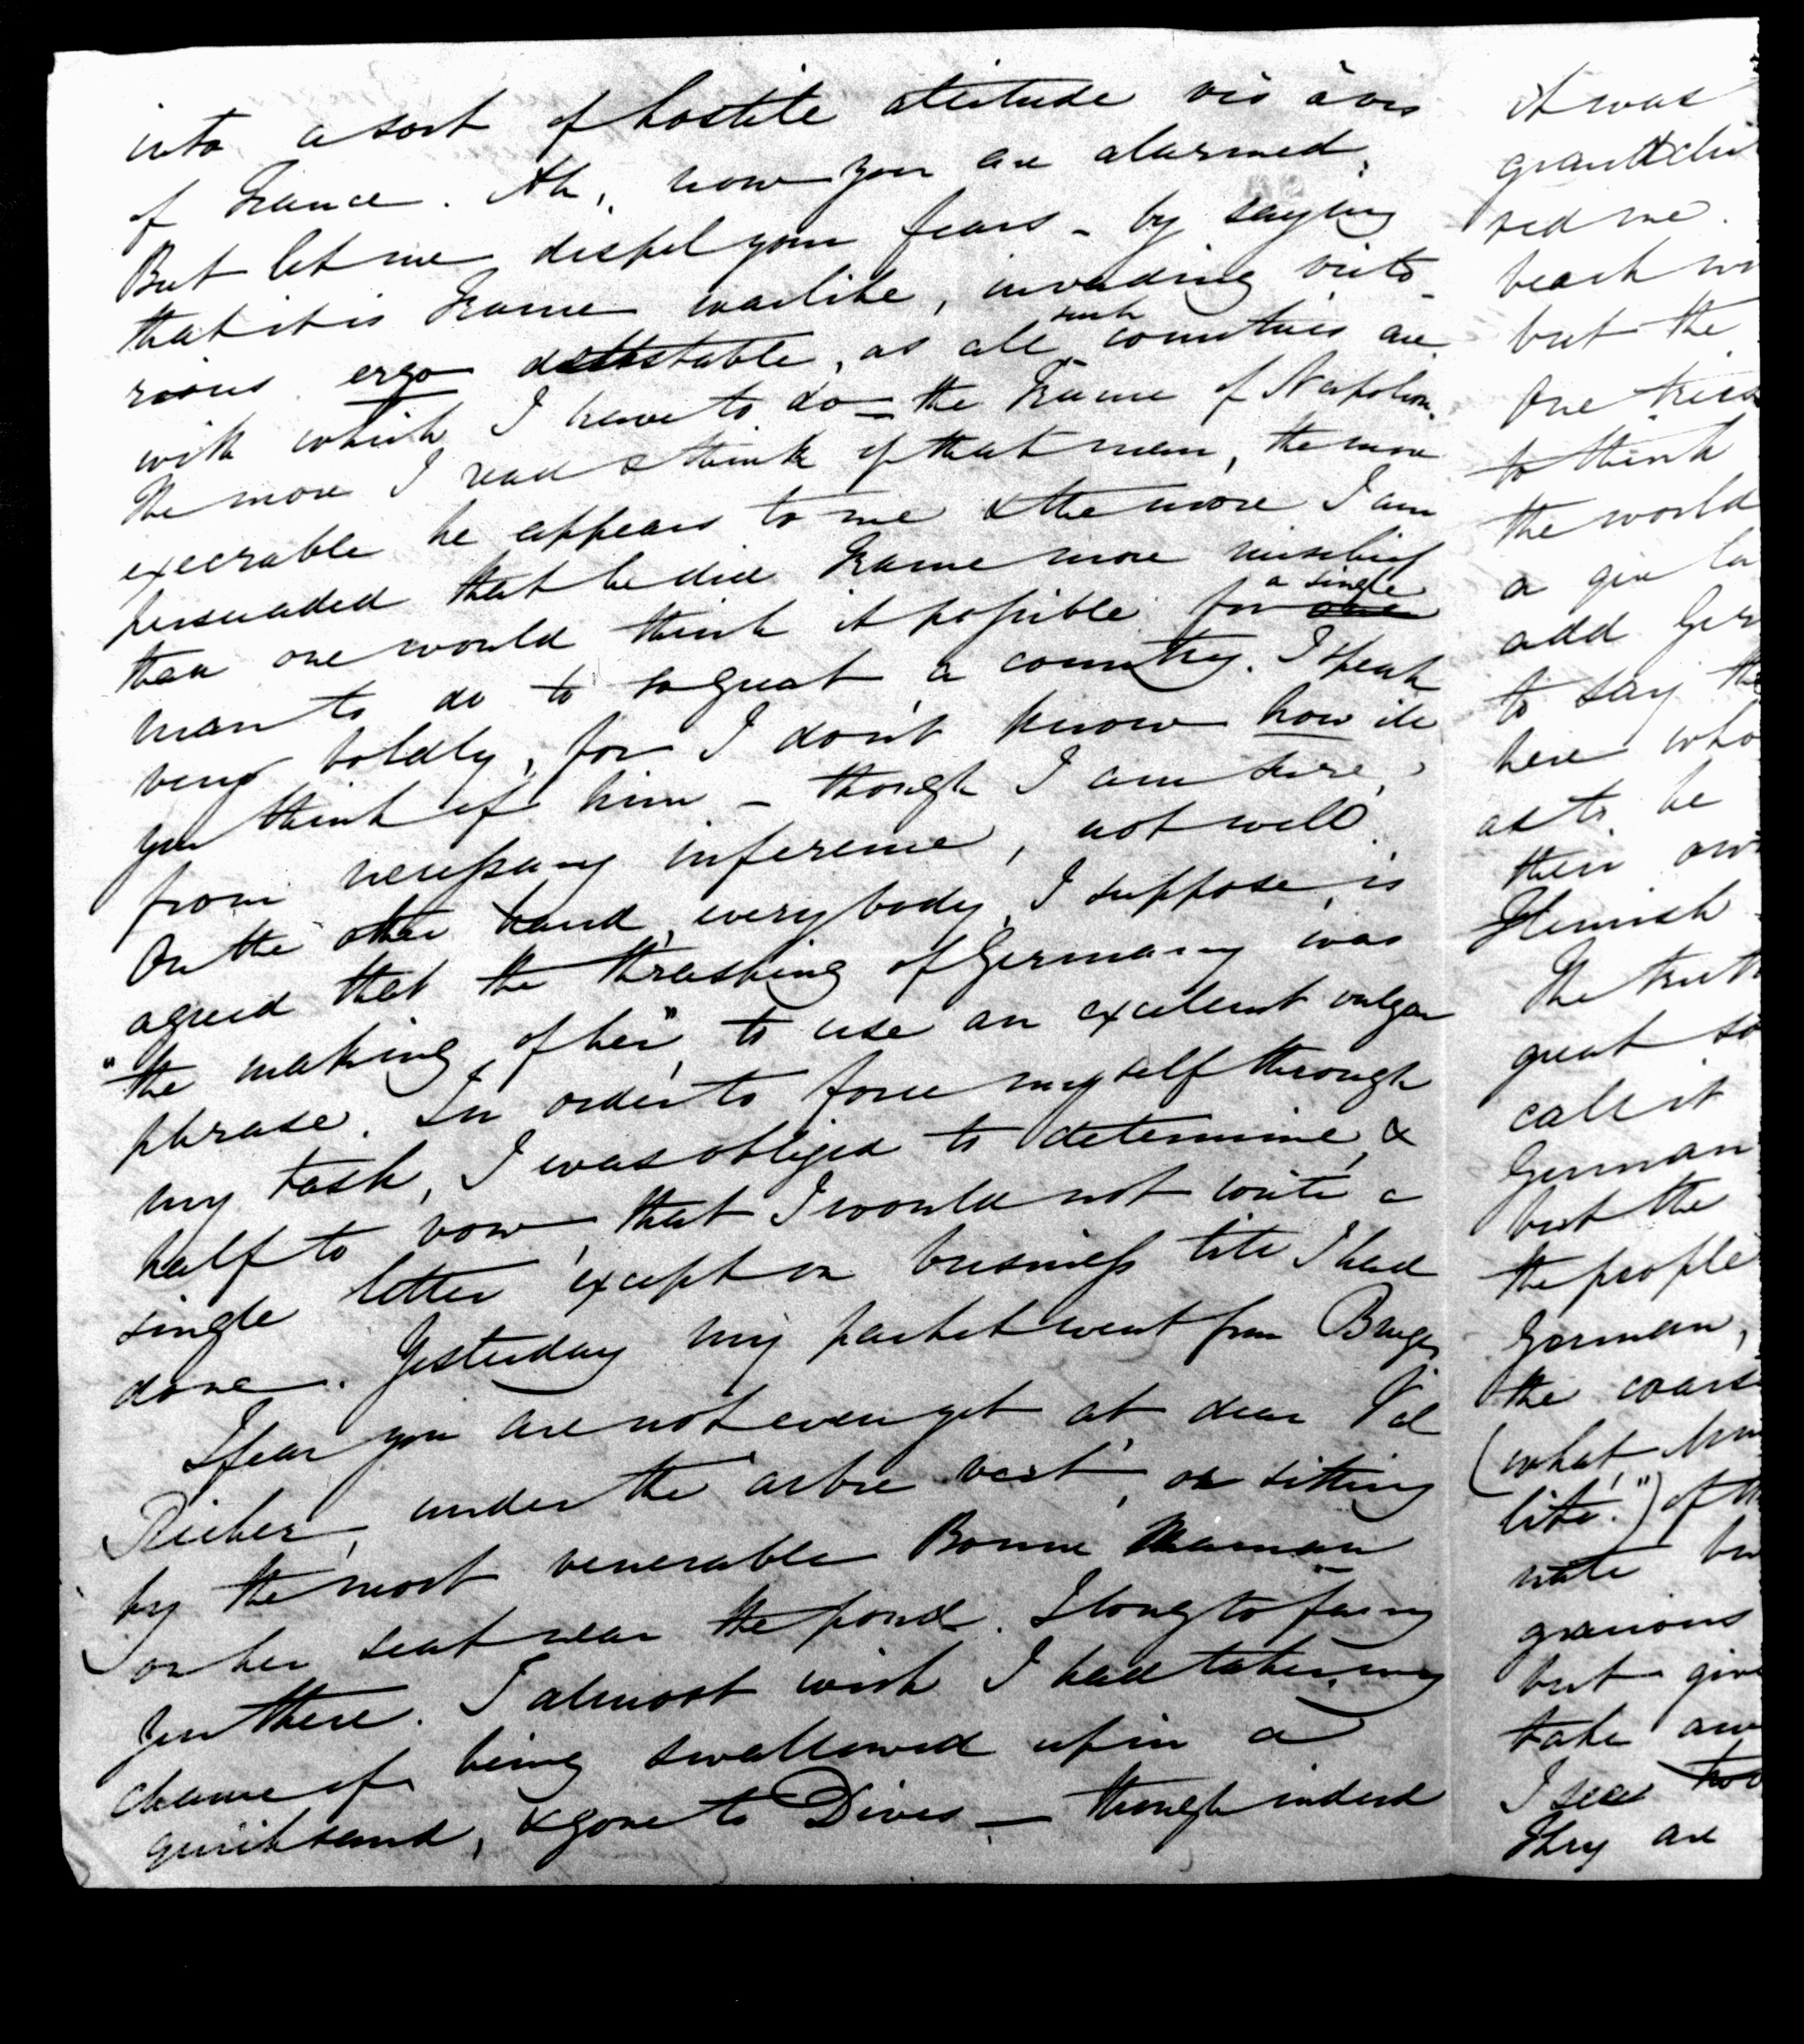 into a sort of hostile attitude vis à vis
of France. Ah, now you are alarmed.
But let me dispel your fears - by saying
that it is France warlike, invading victo-
rious ergo detestable, as all such countries are
with which I have to do - the France of Napoleon.
The more I read & think of that man, the more
execrable he appears to me & the more I am
persuaded that he did France more mischief
than one would think it possible for a single
man to do to so great a country. I speak
very boldly, for I don't know how ill
you think of him - though I am sure,
from necessary inference, not well.
On the other hand, everybody, I suppose, is
agreed that the thrashing of Germany was
"the making of her", to use an excellent vulgar
phrase. In order to force myself through
my task, I was obliged to determine, &
half to vow, that I would not write a
single letter except on business till I had
done. Yesterday my packet went from Bruges
I fear you are not even yet at dear Val
Richer, under the "arbre vert", or sitting
by the most venerable Bonne Maman
on her seat near the pond. I long to fancy
you there. I almost wish I had taken my
chance of being swallowed up in a
quicksand, & gone to Dives - though indeed
it was
red me.
but the
one
to think
the world
a
add
to say
here who
as to be
their
Flemish
The truth
great
call it
German
but the
the people
German,
the
(what
of
gracious
but
take
I see
They are